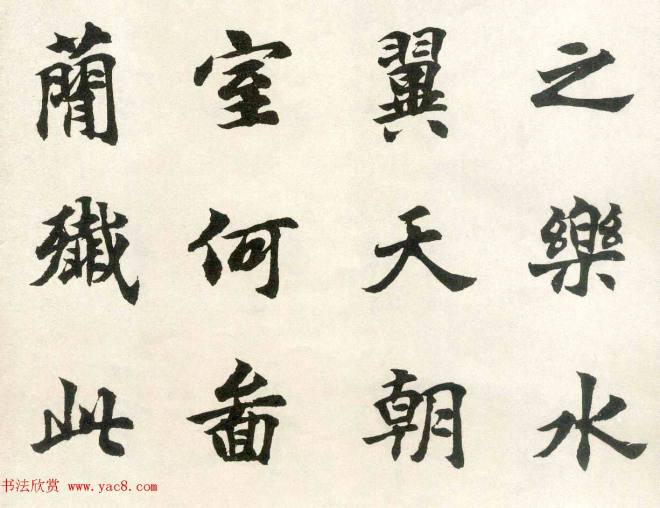 之樂水
翼天朝
室何啚
蕑殲此
书法欣赏 www.yac8.com